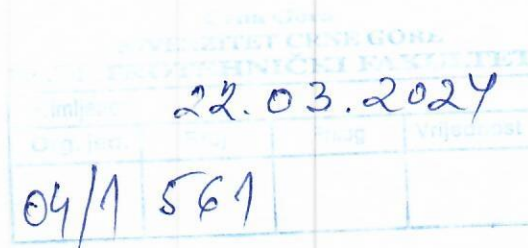 Crna Gora
UNIVERZITET CRNE GORE
ELEKTROTEHNIČKI FAKULTET
22.03.2024
Org. jed. Broj Prilog Vrijednost
04/1 561